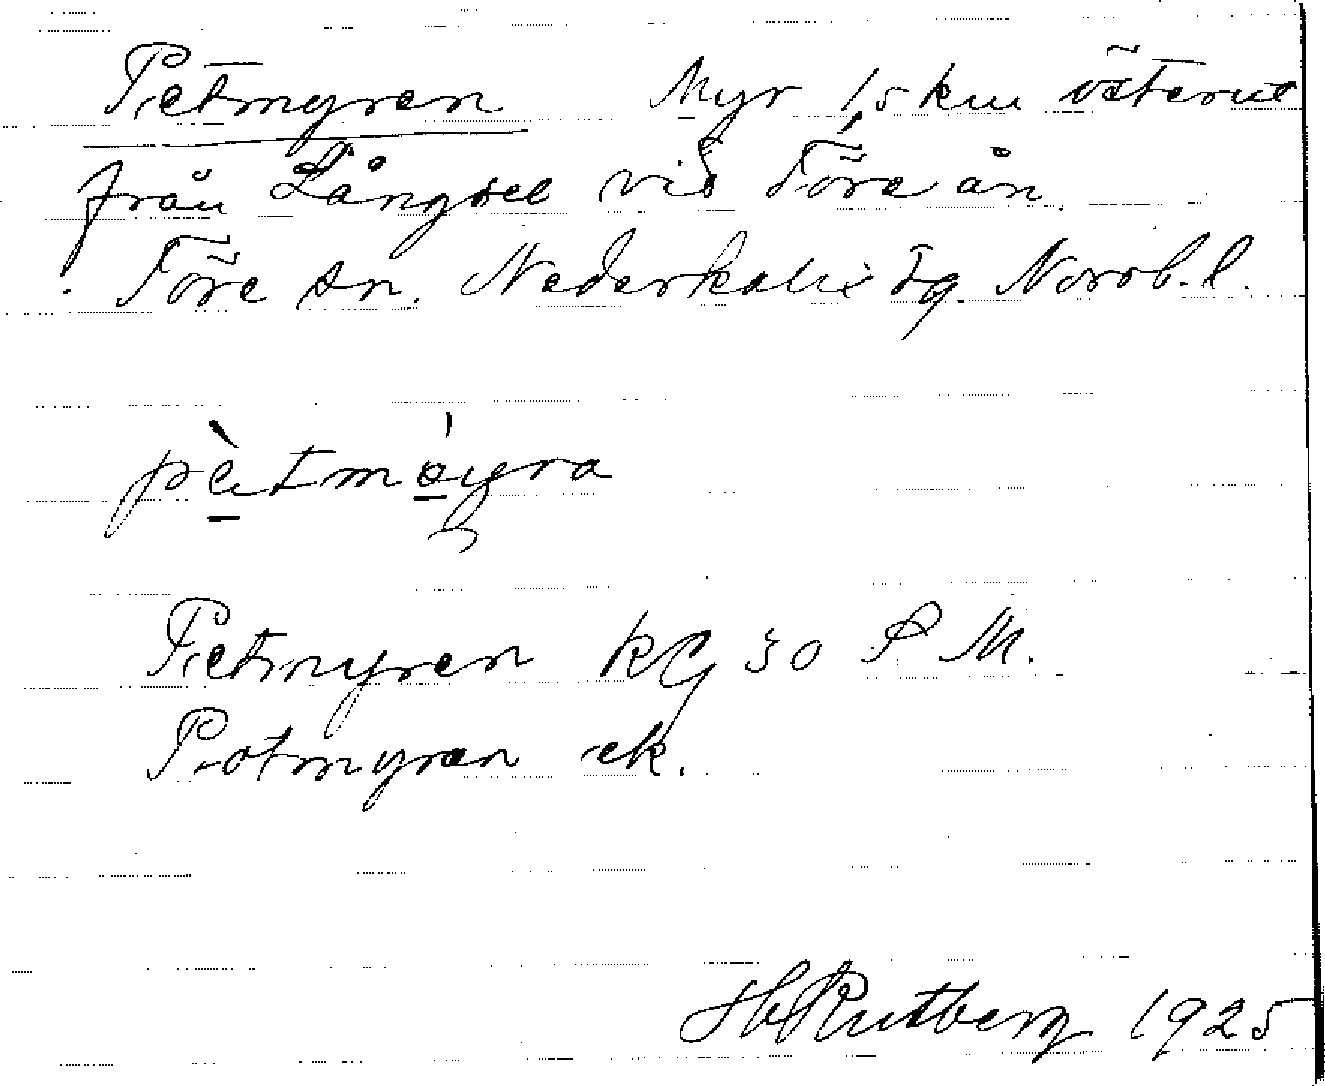 Pietmyren Myr 1,5 km västerut
från Långsel vid Töre ån.
Töre sn. Nederkalix tg. Norrb. l.
Pietmyren KG 30 P M.
Piotmyren ek.
H Rutberg 1925